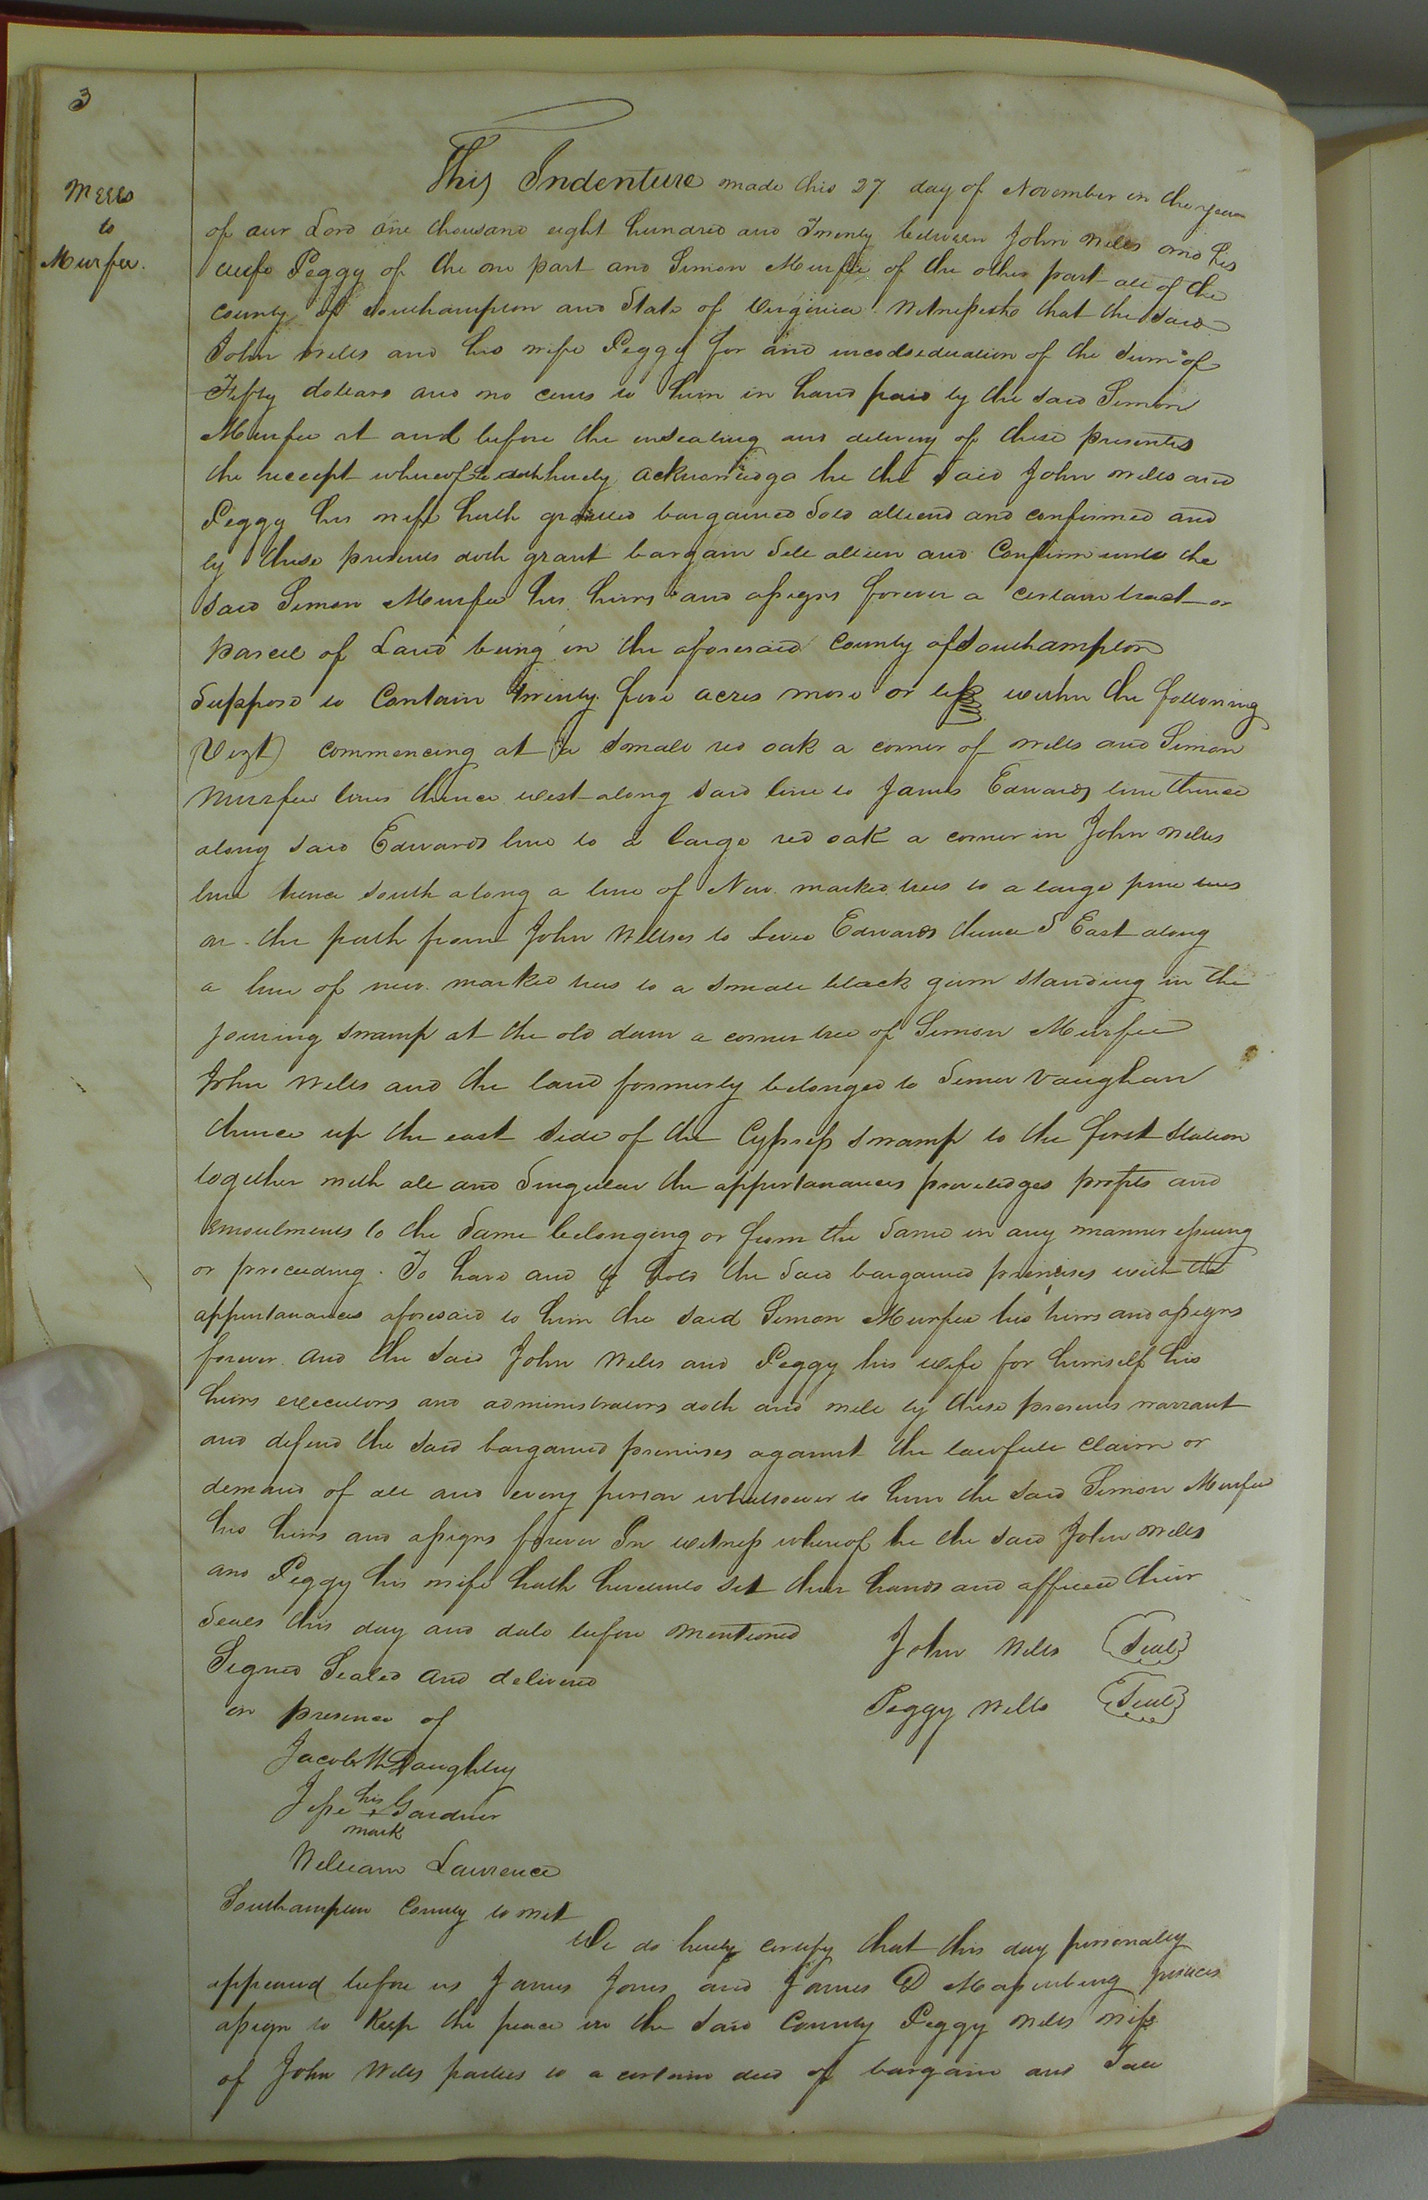 3
Wells
to
Murfee.
This Indenture made this 27 day of November in the year
of our Lord one thousand eight hundred and Twenty between John Wells and his
wife Peggy of the one part and Simon Murfee of the other part all of the
county of Southampton and State of Virginia Witnesseth that the said
John Wells and his wife Peggy for and in consideration of the sum of
Fifty dollars and no cents to him in hand paid by the said Simon
Murfee at and before the ensealing and delivery of these presents
the receipt whereof he doth hereby acknowledge he the said John Wells and
Peggy his wife hath granted bargained Sold aliend and confirmed and
by these presents doth grant bargain Sell alien and Confirm unto the
said Simon Murfee his heirs and assigns forever a certain tract or
parcel of Land being in the aforesaid County of Southampton
Suppose to Contain twenty five acres more or less within the following
(Vizt) commencing at a small red oak a corner of Wells and Simon
Murfees lines thence west along said line to James Edwards line thence
along said Edwards line to a large red oak a corner in John Wells
line thence south along a line of New marked trees to a large pine tree
on the path from John Wellses to Edwards thence S East along
a line of new marked trees to a small black gum standing in the
joining swamp at the old dam a corner tree of Simon Murfee
John Wells and the land formerly belonged to Vaughan
thence up the east side of the Cypress swamp to the first station
together with all and Singular the appurtanances priviledges profits and
emoulments to the Same belonging or from the same in any manner issuing
or proceeding. To have and to hold the said bargained premises with the
appurtanances aforesaid to him the said Simon Murfee his heirs and assigns
forever and the said John Wells and Peggy his wife for himself his
heirs executors and administrators doth and will by these presents warrant
and defend the said bargained premises against the lawfull claim or
demand of all and every person whatsoever to him the said Simon Murfee
his heirs and assigns forever In witness whereof he the said John Wells
and Peggy his wife hath hereunto set their hands and affixed their
seals this day and date before mentioned
John Wells Seal
Signed Sealed and delivered
Peggy Wells Seal
in presence of
Jacob Daughtry
Jesse his + Gardner
mark
William Lawrence
Southampton County to wit
We do hereby certify that this day personally
appeared before us James Jones and James D Massenburg justices
assign to Keep the peace in the said County Peggy Wells wife
of John Wells parties to a certain deed of bargain and Sale